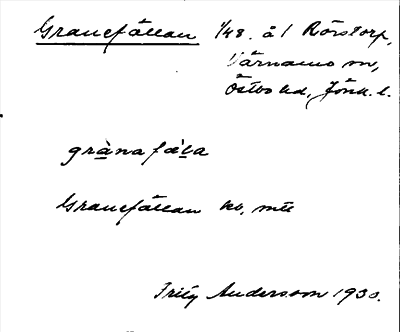 Granefällan 1/48. å 1 Rörstorp,
Värnamo sn,
Östbo hd, Jönk. l.
gràna fàḷa
Granefällan kb, mtl
Fritz Andersson 1930.